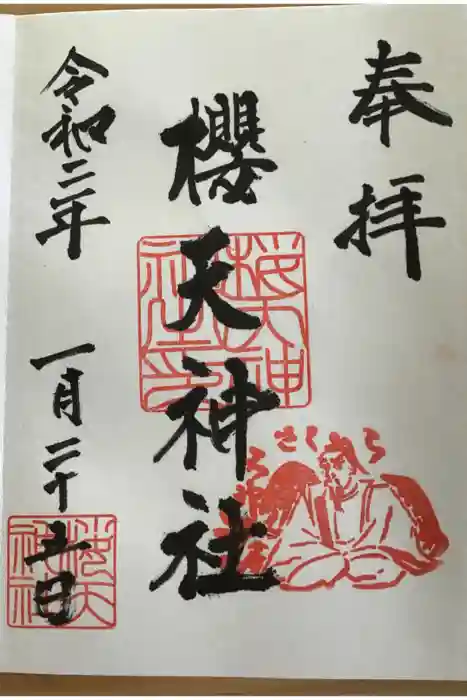 奉拝
櫻天神社
令和二年
一月二十五日
桜天神社印
さくら
桜天神社